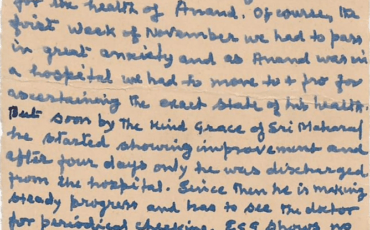 for the health of Anand. Of course, the
first week of November we had to pass
in great anxiety and as Anand was in
a hospital we had to move to + fro for
ascertaining the exact state of his health.
But soon by the Kind Grace of Sri Maharaj
he started showing improvement and
after four days only he was discharged
from the hospital. Since then he is making
steady progress and has to see the doctor
for periodical checking. ECG shows no